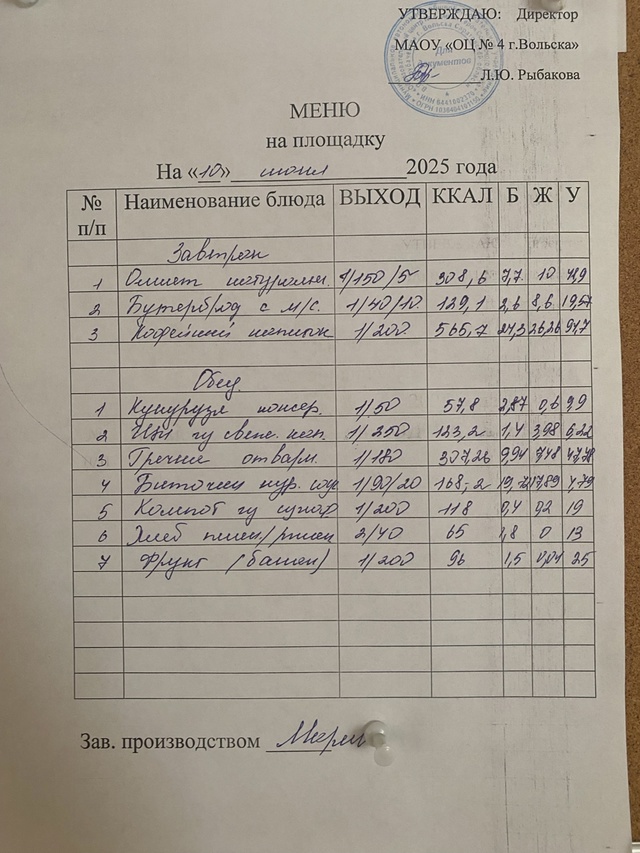 УТВЕРЖДАЮ: Директор
МАОУ «ОЦ № 4 г.Вольска»
Л.Ю. Рыбакова
Для документов
МЕНЮ
на площадку
На «10» июня 2025 года
№ п/п Наименование блюда ВЫХОД ККАЛ Б Ж У
Завтрак
1 Омлет натуральн. 1/150/5 308,6 7,7 10
2 Бутерброд с м/с. 1/40/10 129,1 2,6 8,6
3 Кофейный напиток 1/200 565,7 24,3 26,26 91,7
Обед
1 Кукуруза консер. 1/50 57,8 2,87 0,6 9,9
2 Щи из свеж. кап. 1/250 123,2 1,4 3,98 6,22
3 Гречка отварн. 1/180 307,26 9,94 7,48 47,78
4 Биточки кур. 1/90/20 168,2 19,72 17,89 4,79
5 Компот из сухоф 1/200 118 0,4 0,2 19
6 Хлеб пшен/ржан 2/40 65 1,8 0 13
7 Фрукт (банан) 1/200 96 1,5 0,04 25
Зав. производством